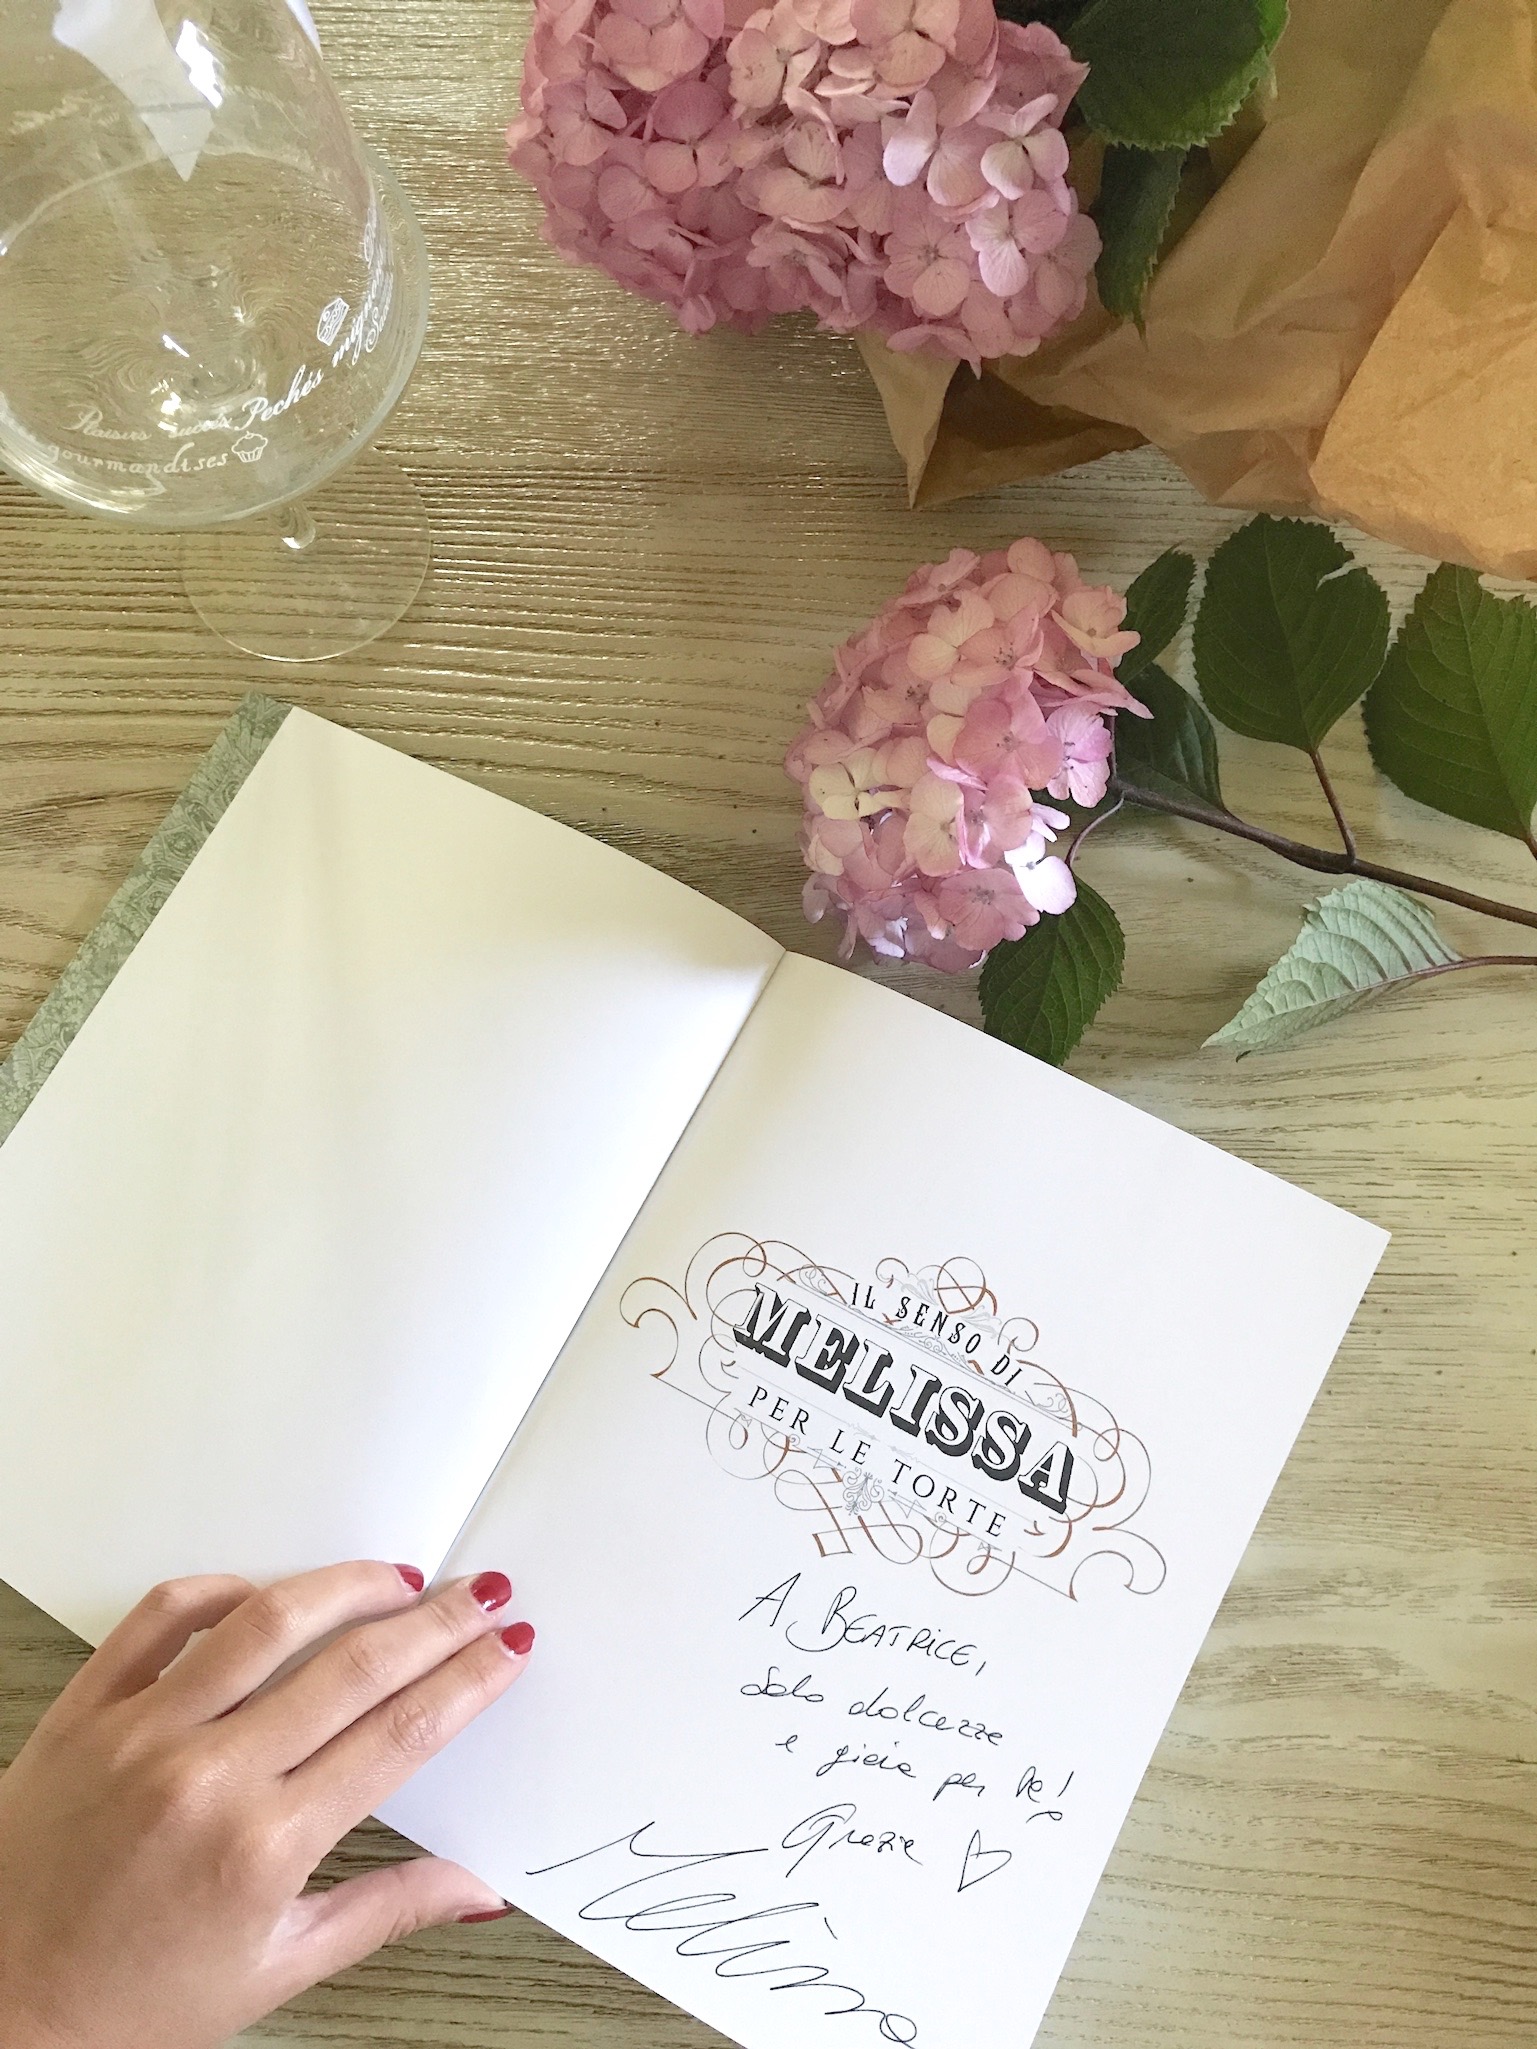 Pechés mign
Plaisirs sucrés
gourmandises
IL SENSO DI
MELISSA
PER LE TORTE
A BEATRICE,
Solo dolcezze
e gioia per te!
Grazie
Melissa